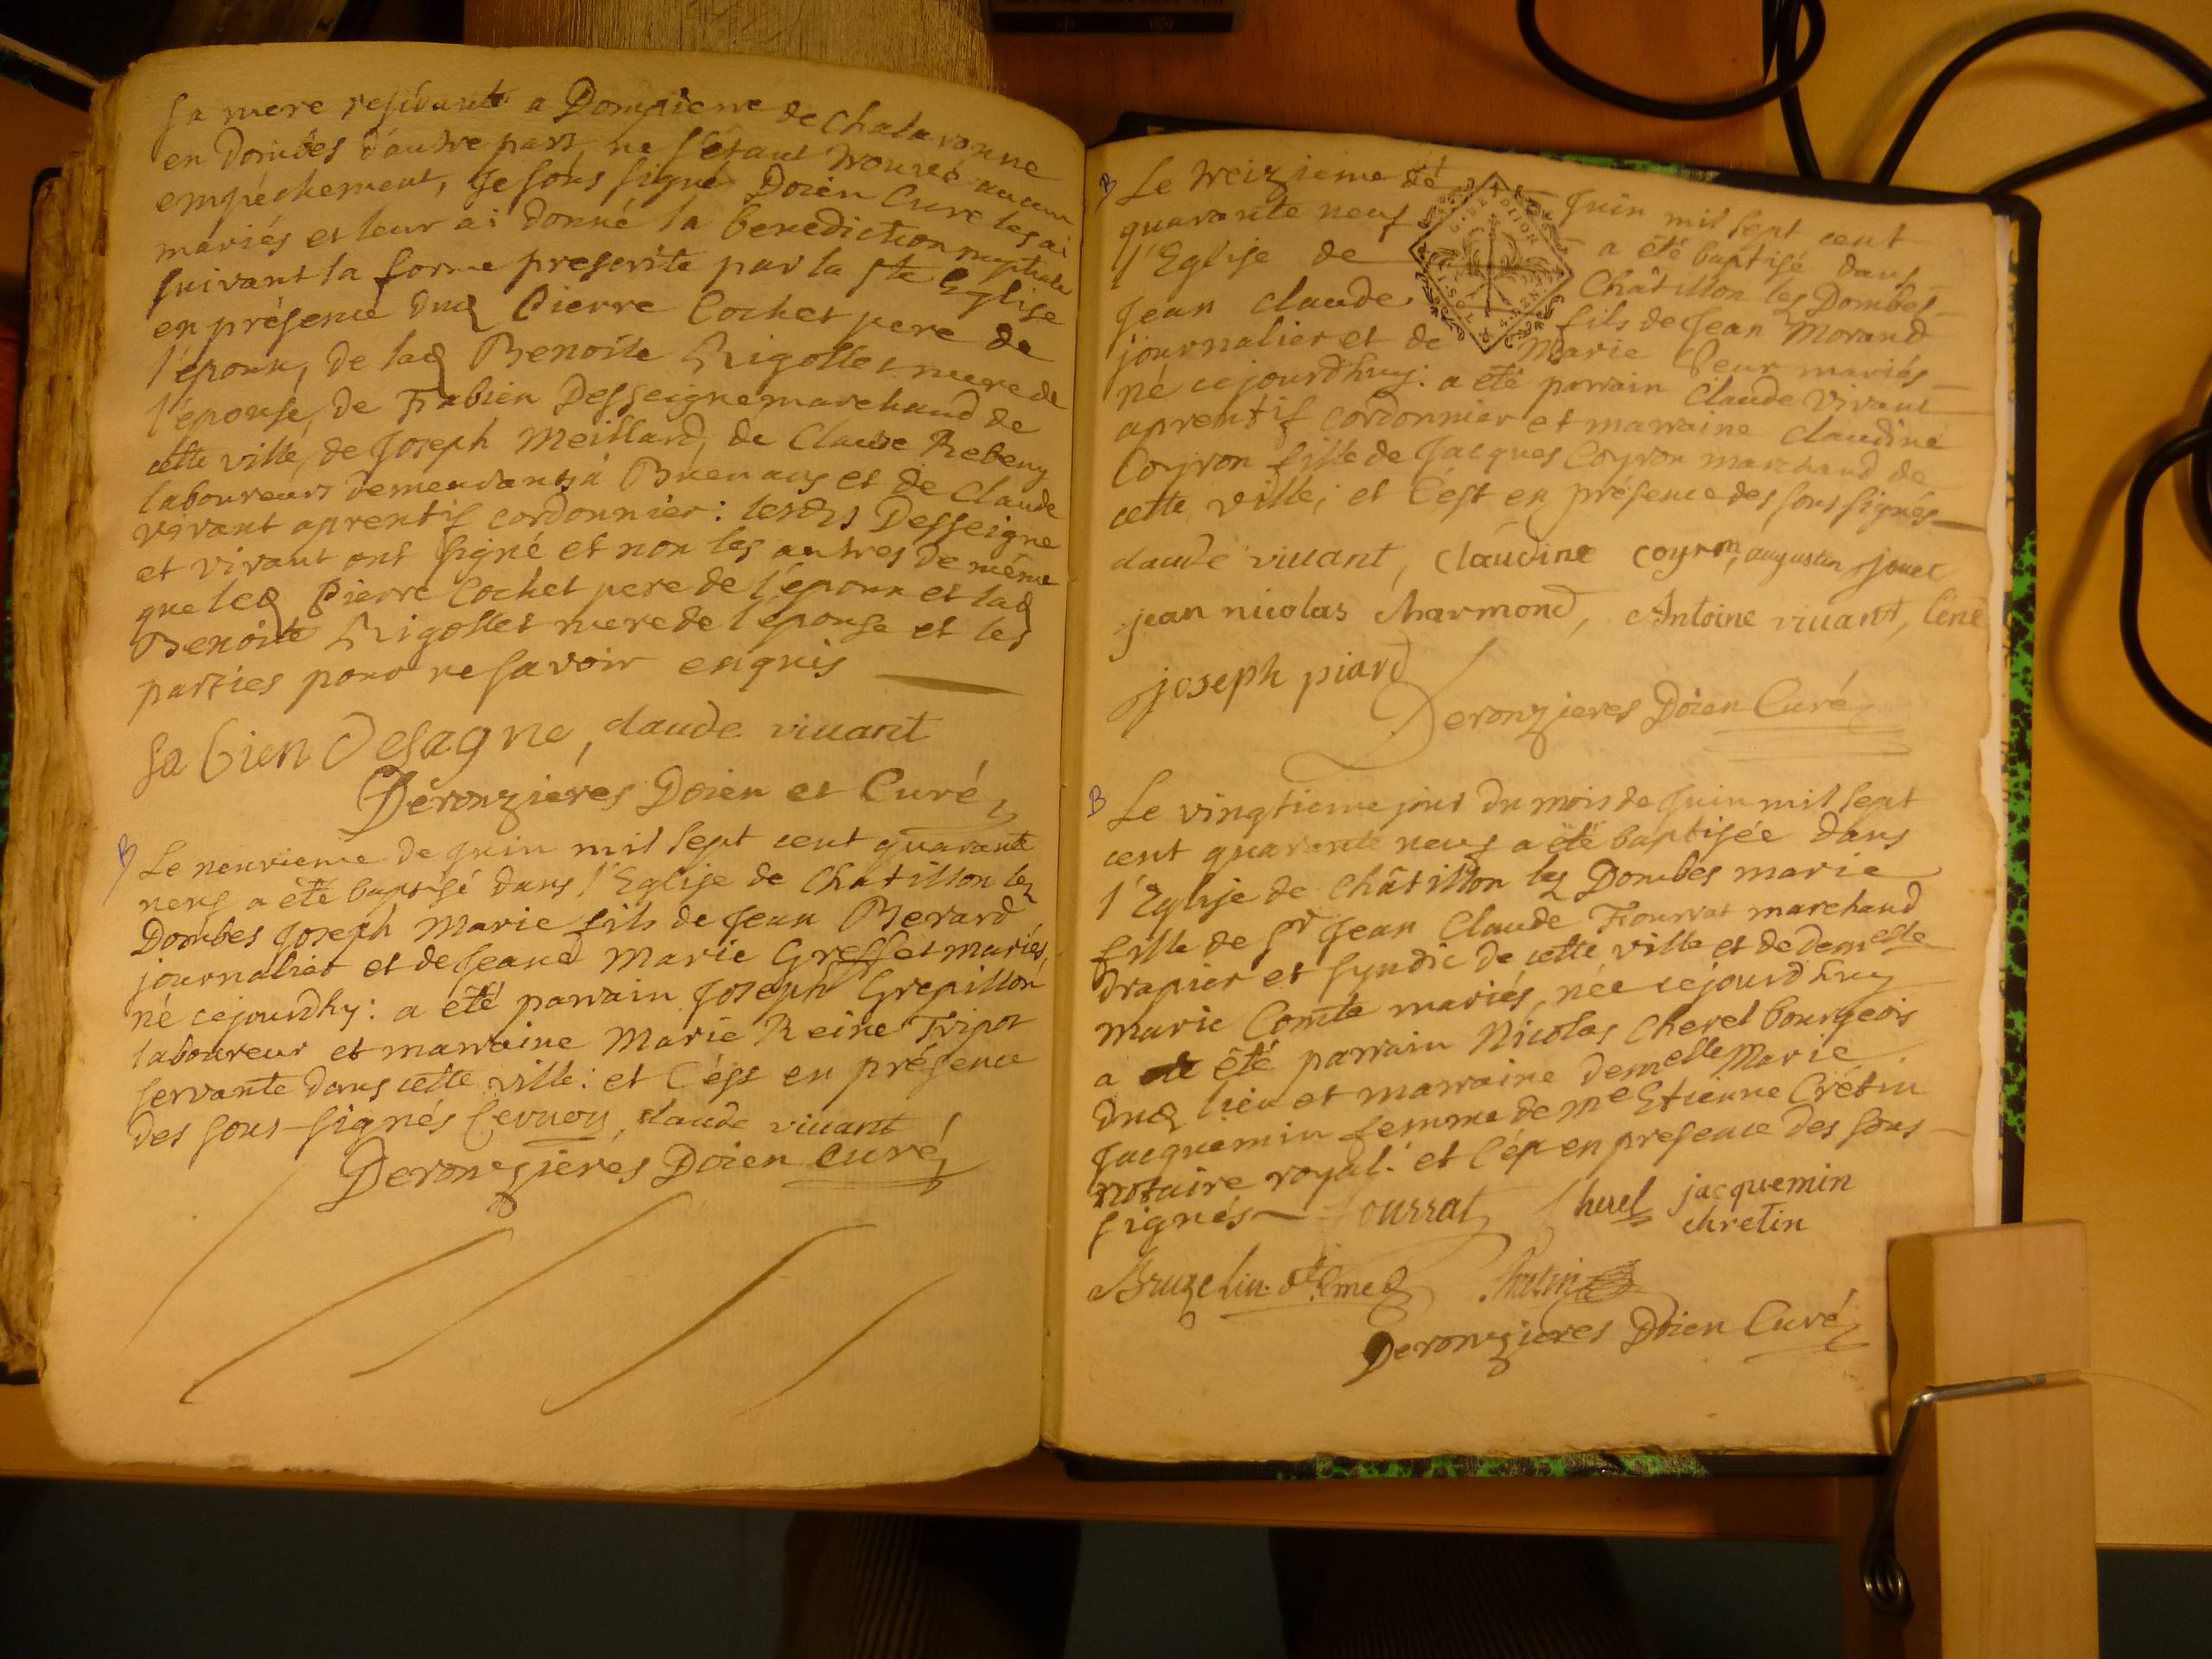 sa mere residante a Dompierre de Chalaronne
en Dombes d'autre part, ne s'étant trouvé aucun
empéchement, Je sous signé Doien Curé les ai
mariés et leur ai donné la benediction nuptiale
suivant la forme prescrite par la ste Eglise
en présence dud Pierre Cochet pere de
l'époux, de lad Benoite Rigollet mere de
l'épouse, de Fabien Desseigne marchand de
cette ville, de Joseph Meillard, de Claude Rebeny
laboureurs demeurants à Buenans et de Claude
vivant aprentif cordonnier: lesdts Desseigne
et vivant ont signé et non les autres de même
que led Pierre Cochet pere de l'époux et lad
Benoite Rigollet mere de l'épouse et les
parties pour ne savoir enquis
fabien Desagne, claude viuant
Deronzieres Doien et Curé
B
Le neuvieme de Juin mil sept cent quarante
neuf a été baptisé dans l'Eglise de Chatillon lez
Dombes Joseph Marie fils de Jean Berard
journalier et de Jeane Marie Greffet mariés,
né cejourdhy: a été parrain Joseph Grepillon
laboureur et marraine Marie Reine Tripot
servante dans cette ville: et c'ést en présence
des sous-signés claude viuant
Deronzieres Doien curé
B
Le treizieme de Juin mil sept cent
quarante neuf a été baptisé dans
l'Eglise de Châtillon les Dombes
Jean Claude fils de Jean Morand
journalier et de Marie Peur mariés
né cejourdhuy: a été parrain Claude Vivant
aprentif cordonnier et marraine Claudine
Coyron fille de Jacques Coyron marchand de
cette ville; et c'est en présence des sous signés
claude viuant, claudine coyron, augustin jouet
jean nicolas charmond, Antoine viuant,
joseph piard
Deronzieres Doien Curé
B
Le vingtieme jour du mois de Juin mil sept
cent quarante neuf a été baptisée dans
l'Eglise de Châtillon les Dombes marie
fille de sr Jean Claude Fourrat marchand
drapier et syndic de cette ville et de demelle
marie Comte mariés, née cejourdhuy
a été parrain Nicolas Cherel bourgeois
dud lieu et marraine demelle Marie
Jacquemin femme de me Etienne Crétin
notaire royal: et c'ést en presence des sous-
signés fourrat Cherel jacquemin
chretin
Deronzieres Doien Curé